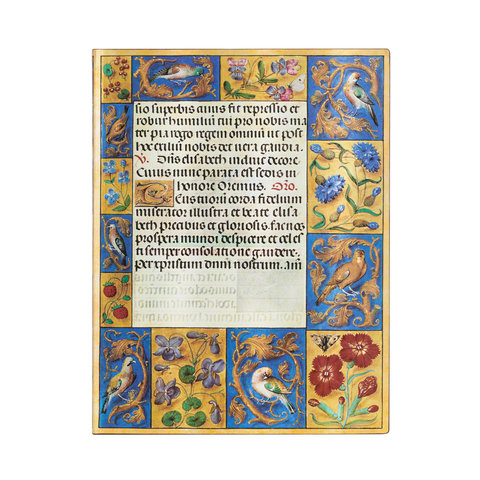 sio superbis cuius fit repressio et
robur humilium cui pro nobis ma
ter pia rego regem omnium ut post
hec exilium nobis det vera gaudia
V. Diffusa beth in due decore
Cuius munere parata est sedis in
honore Oremus. Oro.
Tuorum corda fidelium
miserator illustra et beate elisa
beth precibus et gloriosis facnos
prospera mundi despicere et celes
ti semper consolatione gaudere.
per christum dominum nostrum. am